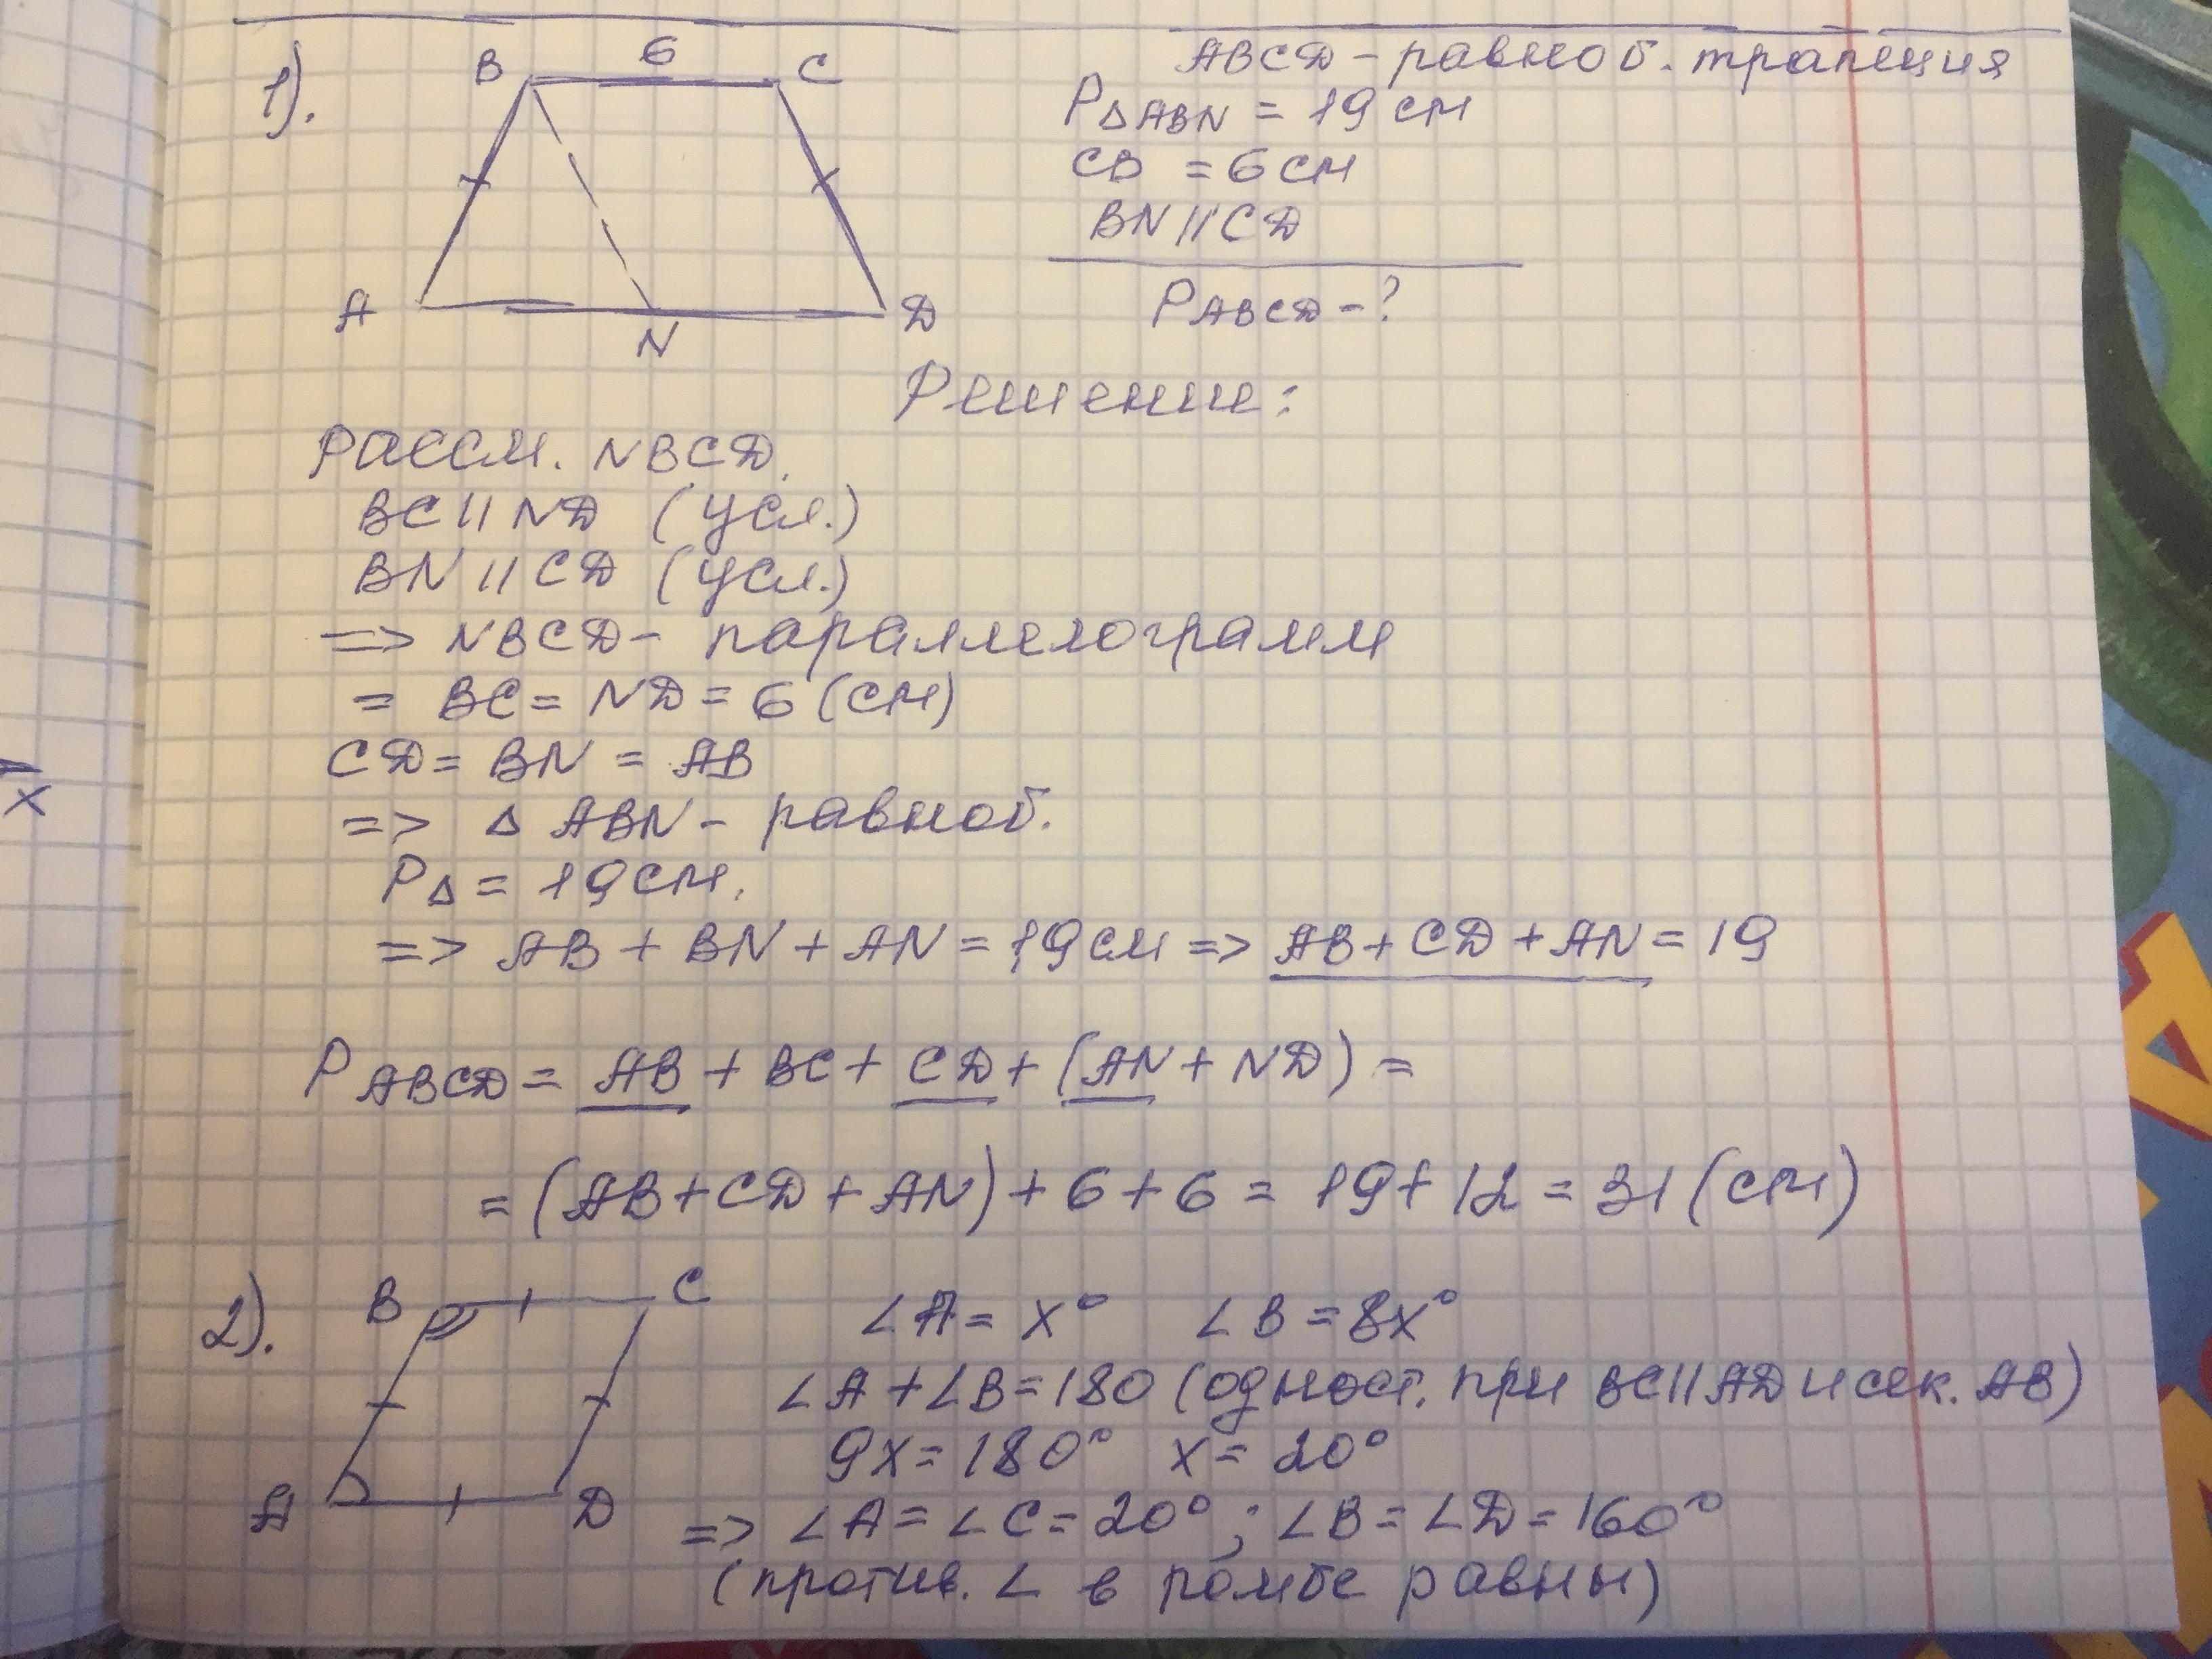 1).
B 6 C
A N D
ABCD - равноб. трапеция
P△ABN = 19 см
CB = 6 см
BN || CD
PABCD - ?
Решение:
Рассм. NBCD.
BC || ND (усл.)
BN || CD (усл.)
=> NBCD - параллелограмм
= BC = ND = 6 (см)
CD = BN = AB
=> △ ABN - равноб.
P△ = 19 см.
=> AB + BN + AN = 19 см => AB + CD + AN = 19
PABCD = AB + BC + CD + (AN + ND) =
= (AB + CD + AN) + 6 + 6 = 19 + 12 = 31 (см)
2).
B C
A D
∠A = x° ∠B = 8x°
∠A + ∠B = 180 (одност. при BC || AD и сек. AB)
9x = 180° x = 20°
=> ∠A = ∠C = 20° ; ∠B = ∠D = 160°
(против. ∠ в ромбе равны)
x